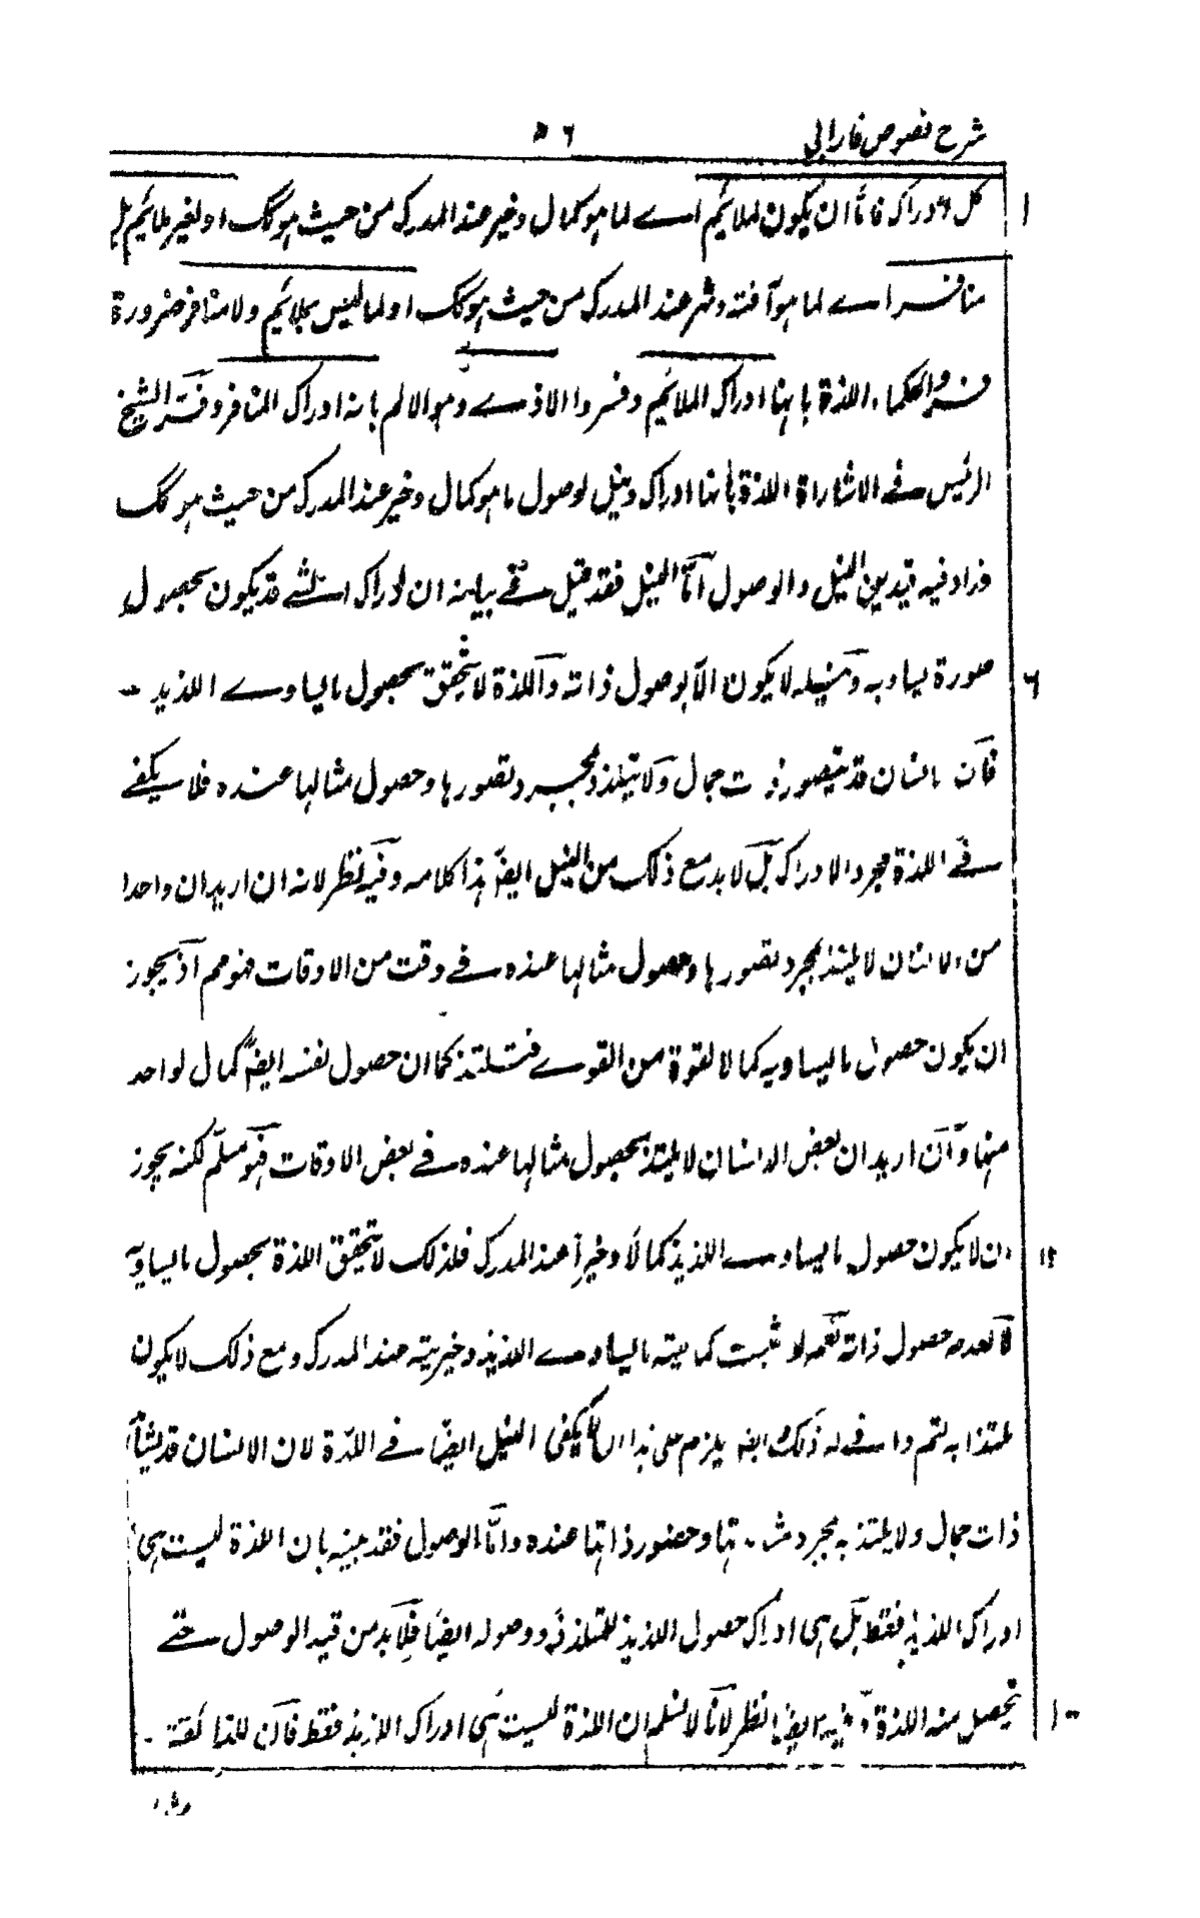 شرح نصوص فارابی
۵۶
كل ادراك فاما ان يكون لملائم اے لما هو كمال وخير عند المدرك من حيث هو كك او لغير ملائم بل
منافر اے لما هو آفة وشر عند المدرك من حيث هو كك او لما ليس بملائم ولا منافر ضرورة
فسر الحكماء اللذة بانها ادراك الملائم وفسروا الاذے وهو الالم بانه ادراك المنافر وفسر الشيخ
الرئيس فے الاشاراة اللذة بانها ادراك ونيل لوصول ما هو كمال وخير عند المدرك من حيث هو كك
فزاد فيه قيدين النيل والوصول اما النيل فقد قيل فے بيانه ان ادراك الشے قد يكون بحصول
صورة يساويه ونيله لا يكون الا بوصول ذاته واللذة لا تتحقق بحصول ما يساوے اللذيذ
فان الانسان قد يتصور ذات جمال ولا يتلذذ بمجرد تصورها وحصول مثالها عنده فلا يكفے
فے اللذة مجرد الادراك بل لا بد مع ذلك من النيل ايضا هذا كلامه وفيه نظر لانه ان اريد ان واحدا
من الانسان لا يلتذ بمجرد تصورها وحصول مثالها عنده فے وقت من الاوقات فهو مم اذ يجوز
ان يكون حصول ما يساويه كمالا لقوة من القوے فتلتذ كما ان حصول نفسه ايضا كمال لواحد
منها وان اريد ان بعض الانسان لا يلتذ بحصول مثالها عنده فے بعض الاوقات فهو مسلم لكنه يجوز
ان لا يكون حصول ما يساوے اللذيذ كمالا وخيرا عند المدرك فلذلك لا تتحقق اللذة بحصول ما يساويه
لا لعدم حصول ذاته نعم لو ثبت كمالية ما يساوے اللذيذ وخيريته عند المدرك ومع ذلك لا يكون
ملتذا به لتم وا فے له ذلك ايضا يلزم على هذا ان لا يكفى النيل ايضا فے اللذة لان الانسان قد يشا
ذات جمال ولا يلتذ به بمجرد تها وحضور ذاتها عنده واما الوصول فقد بينه بان اللذة ليست هى
ادراك اللذيذ فقط بل هى ادراك حصول اللذيذ للمتلذذ ووصوله ايضا فلا بد من قيد الوصول حتے
تحصل منه اللذة وفيه ايضا نظر لانا لا نسلم ان اللذة ليست هى ادراك اللذيذ فقط فان للذائقة